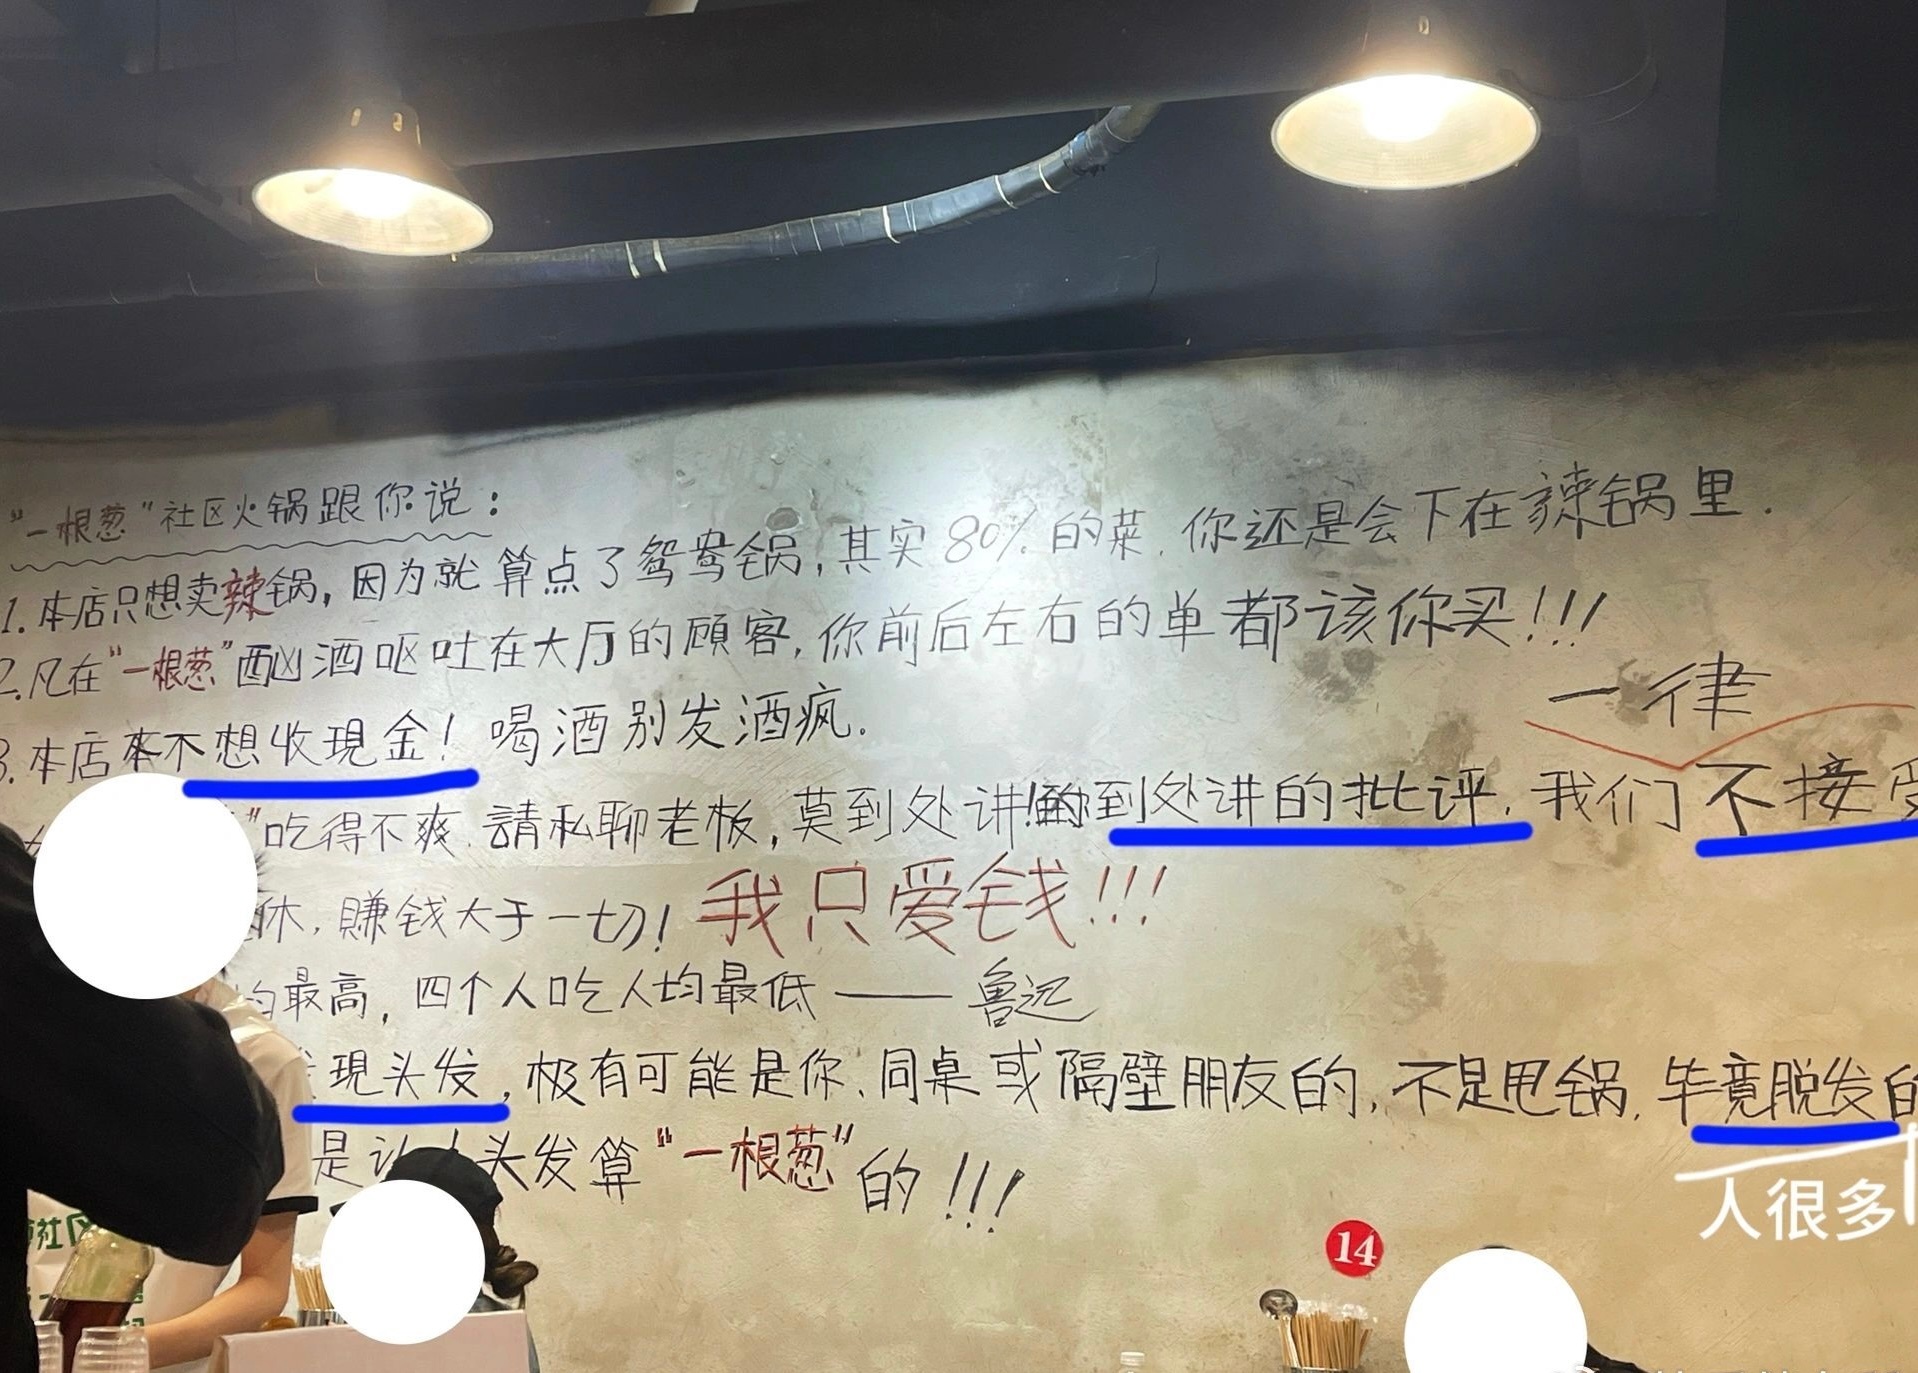 “一根葱”社区火锅跟你说：
1.本店只想卖辣锅，因为就算点了鸳鸯锅，其实80%的菜，你还是会下在辣锅里.
2.凡在“一根葱”酗酒呕吐在大厅的顾客，你前后左右的单都该你买!!!
3.本店本不想收現金！喝酒别发酒疯.
一律
”吃得不爽，請私聊老板，莫到处讲！到处讲的批评，我们不接受
休，賺钱大于一切！我只爱钱!!!
均最高，四个人吃人均最低——鲁迅
現头发，极有可能是你、同桌或隔壁朋友的，不是甩锅，毕竟脱发的
人很多
是 头发算“一根葱”的!!!
社区
14